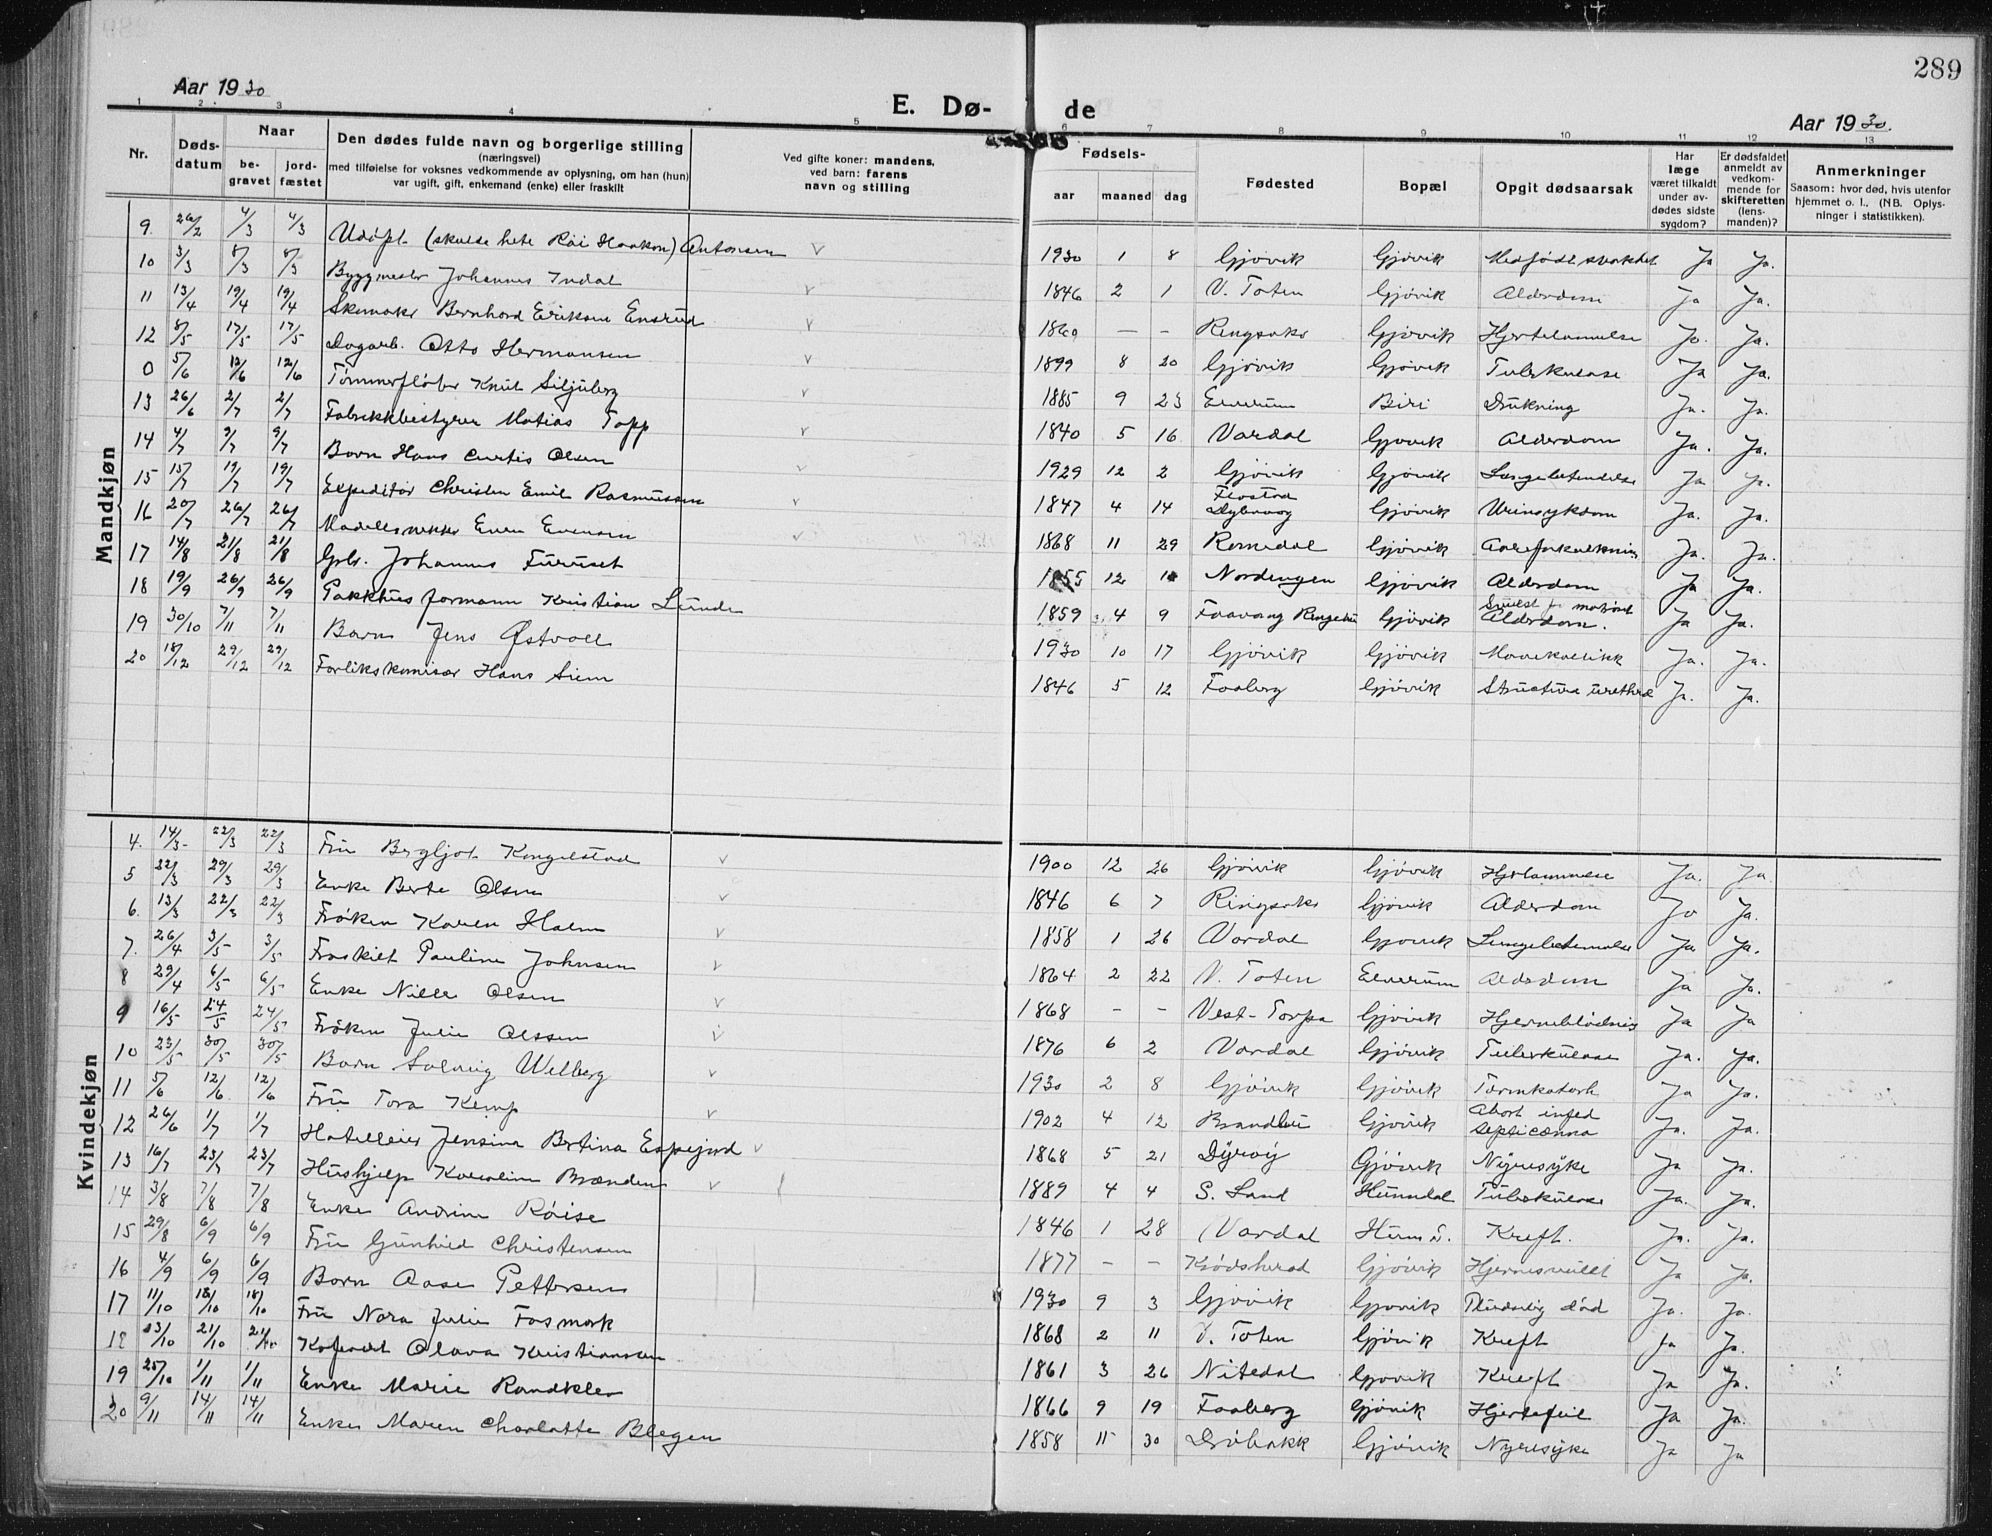 289
Aar 1930
E. Dø-
de
Aar 1930.
1 2 3 4 5 6 7 8 9 10 11 12 13
Nr.
Døds-
datum
Naar
be-
gravet
jord-
fæstet
Den dødes fulde navn og borgerlige stilling
(næringsvei)
med tilføielse for voksnes vedkommende av oplysning, om han (hun)
var ugift, gift, enkemand (enke) eller fraskilt
Ved gifte koner: mandens,
ved barn: farens
navn og stilling
Fødsels-
aar maaned dag
Fødested
Bopæl
Opgit dødsaarsak
Har
læge
været tilkaldt
under av-
dødes sidste
sygdom?
Er dødsfaldet
anmeldt av
vedkom-
mende for
skifteretten
(lens-
manden)?
Anmerkninger
Saasom: hvor død, hvis utenfor
hjemmet o. l., (NB. Oplys-
ninger i statistikken).
Mandkjøn
9. 26/2 4/3 4/3 Udøpt (skulde hete Roi Haakon) Antonsen 1930 1 8 Gjøvik Gjøvik Medfødt svakhet Ja Ja.
10 3/3 8/3 8/3 Byggmester Johannes Indal 1846 2 1 V. Toten Gjøvik Alderdom Ja Ja.
11 13/4 19/4 19/4 Skomaker Bernhard Eriksen Ensrud 1860 — — Ringsaker Gjøvik Hjertelammelse Ja. Ja.
12 8/5 17/5 17/5 Dagarb. Otto Hermansen 1899 8 20 Gjøvik Gjøvik Tuberkulose Ja Ja.
0 5/6 12/6 12/6 Tømmerfløter Knut Siljuberg 1885 9 23 Elverum Biri Drukning Ja. Ja.
13 26/6 2/7 2/7 Fabrikkbestyrer Matias Topp 1840 5 16 Vardal Gjøvik Alderdom Ja. Ja.
14 4/7 9/7 9/7 Barn Hans Curtis Olsen 1929 12 2 Gjøvik Gjøvik Lungebetendelse Ja Ja.
15 15/7 19/7 19/7 Expeditør Christen Emil Rasmussen 1847 4 14 Flostad Dybvaag Gjøvik Urinsykdom Ja. Ja.
16 20/7 26/7 26/7 Modellsnekker Even Evensen 1868 11 29 Romedal Gjøvik Aareforkalkning Ja. Ja.
17 14/8 21/8 21/8 Grb. Johannes Furuset 1855 12 10 Nordengen Gjøvik Alderdom Ja Ja.
18 19/9 26/9 26/9 Pakkhusformann Kristian Lunde 1859 4 9 Faavang Ringebu Gjøvik Alderdom. Ja Ja.
19 30/10 7/11 7/11 Barn Jens Østvoll 1930 10 17 Gjøvik Gjøvik Mavekolikk Ja. Ja.
20 18/12 29/12 29/12 Forlikskomisær Hans Siem 1846 5 12 Faaberg Gjøvik Structura urethrae Ja. Ja.
Kvindekjøn
4. 14/3 22/3 22/3 Fru Bergljot Kongelstad 1900 12 26 Gjøvik Gjøvik Hjertelammelse Ja. Ja.
5 22/3 29/3 29/3 Enke Berte Olsen 1846 6 7 Ringsaker Gjøvik Alderdom Ja Ja.
6. 13/3 22/3 22/3 Frøken Karen Holm 1858 1 26 Vardal Gjøvik Lungebetendelse Ja Ja.
7. 26/4 3/5 3/5 Fraskilt Pauline Johnsen 1864 2 22 V. Toten Elverum Alderdom Ja Ja.
8 29/4 6/5 6/5 Enke Nille Olsen 1868 — — Vest-Torpa Gjøvik Hjerneblødning Ja Ja
9 16/5 24/5 24/5 Frøken Julie Olssen 1876 6 2 Vardal Gjøvik Tuberkulose Ja. Ja.
10 23/5 30/5 30/5 Barn Solveig Welberg 1930 2 8 Gjøvik Gjøvik Tarmkatarh Ja Ja.
11 5/6 12/6 12/6 Fru Tora Kemp 1902 4 12 Brandbu Gjøvik Abort infed septicænna Ja. Ja.
12 26/6 1/7 1/7 Hotelleier Jensina Bertina Espejord 1868 5 21 Dyrøy Gjøvik Nyresyke Ja Ja.
13 16/7 23/7 23/7 Hushjelp Karoline Brænden 1889 4 4 S. Land Hunndal Tuberkulose Ja. Ja.
14 3/8 7/8 7/8 Enke Andrine Røise 1846 1 28 Vardal Kreft. Ja. Ja.
15 29/8 6/9 6/9 Fru Gunhild Christensen 1877 — — Krødsherad Gjøvik Hjernesvulst Ja Ja.
16 4/9 6/9 6/9 Barn Aase Pettersen 1930 9 3 Gjøvik Gjøvik Pludselig død Ja. Ja.
17 11/10 18/10 18/10 Fru Nora Julie Fosmork 1868 2 11 V. Toten Gjøvik Kreft Ja Ja.
18 13/10 21/10 21/10 Olava Kristiansen 1861 3 26 Nitedal Gjøvik Kreft Ja Ja.
19 25/10 1/11 1/11 Enke Marie Randklev 1866 9 19 Faaberg Gjøvik Hjertefeil Ja Ja.
20 9/11 14/11 14/11 Enke Maren Charlotte Blegen 1858 11 30 Drøbakk Gjøvik Nyresyke Ja Ja